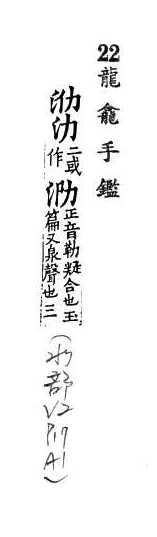 22龍龕手鑑
氻二或作泐正音勒凝合也玉篇又泉聲也三
(水部V2 P17 A1)